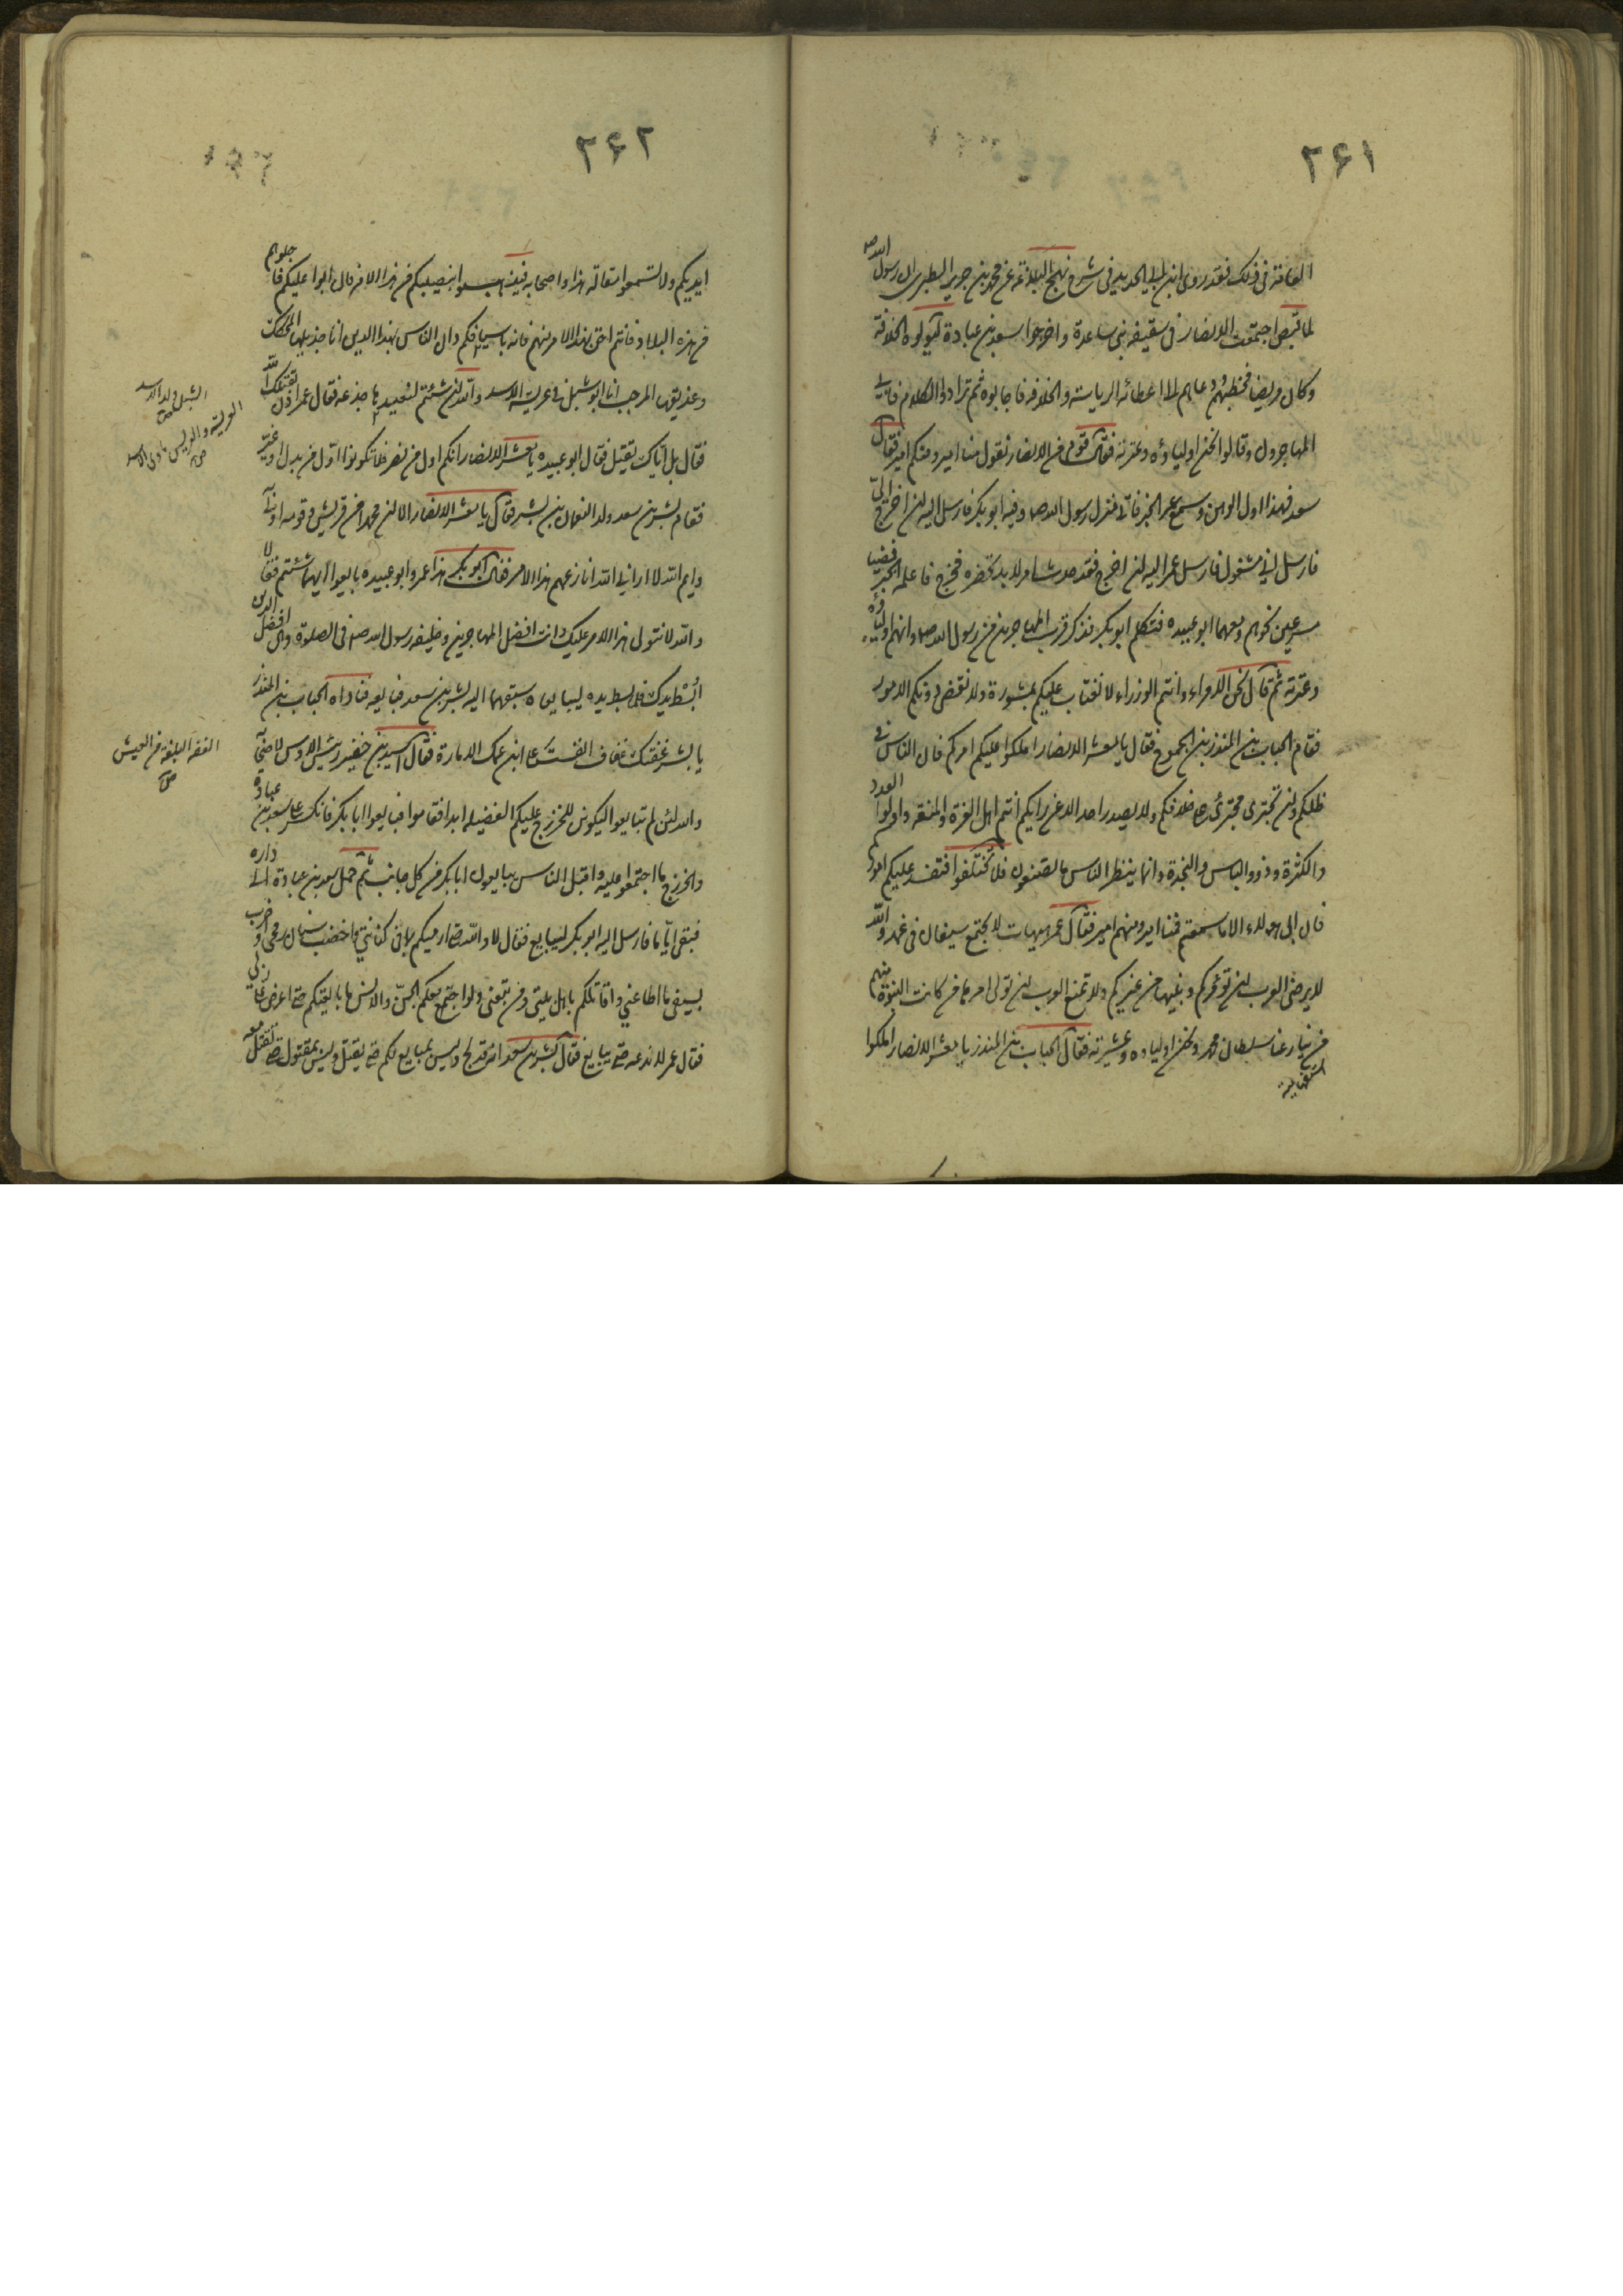 ۲۶۱
العامة فى ذلك فقد روى ابن ابى الحديد فى شرح نهج البلاغة عن محمد بن جرير الطبرى ان رسول الله ص
لما قبض اجتمعت الانصار فى سقيفه بنى ساعدة و اخرجوا سعد بن عبادة ليولوه الخلافة
وكان مريضا فخطبهم ودعاهم الى اعطائه الرياسة والخلافه فاجابوه ثم ترادوا الكلام فان ابى
المهاجرون وقالوا نحن اولياؤه وعترته فقال قوم من الانصار نقول منا امير ومنكم امير فقال
سعد فهذا اول الوهن وسمع عمر الخبر فاتى منزل رسول الله ص وفيه ابو بكر فارسل اليه ان اخرج الىّ
فارسل انى مشغول فارسل عمر اليه ان اخرج فقد حدث امر لابد ان تحضره فخرج فاعلمه الخبر فمضيا
مسرعين نحوهم ومعهما ابو عبيده فتكلم ابو بكر فذكر قرب المهاجرين من رسول الله ص وانهم اولياؤه
وعترته ثم قال نحن الامراء وانتم الوزراء لا نفتات عليكم بمشورة ولا نقضى دونكم الامور
فقام الحباب بن المنذر بن الجموح فقال يا معشر الانصار املكوا عليكم امركم فان الناس فى
ظلكم ولن يجترى مجترئ على خلافكم ولا يصدر احد الا عن رايكم انتم اهل العزة والمنعه واولوا العدد
والكثرة وذوو الباس والنجدة وانما ينظر الناس ما تصنعون فلا تختلفوا فتفسد عليكم اموركم
فان ابى هولاء الا ما سمعتم فمنا امير ومنهم امير فقال عمر هيهات لا يجتمع سيفان فى غمد والله
لا يرضى العرب ان تؤمركم ونبيها من غيركم ولا تمنع العرب ان تولى امرها من كانت النبوة منهم
من ينازعنا سلطان محمد ونحن اولياوه وعشيرته فقال الحباب بن المنذر يا معشر الانصار املكوا
استفهامية
۲۶۲
ايديكم ولا تسمعوا مقالة هذا واصحابه فيذهبوا بنصيبكم من هذا الامر فان ابوا عليكم فاجلوهم
من هذه البلاد فانتم احق بهذا الامر منهم فانه باسيافكم دان الناس بهذا الدين انا جذيلها المحكك
وعذيقها المرجب انا ابو شبل فى عريسة الاسد والله ان شئتم لنعيدنها جذعه فقال عمر اذن يقتلك الله
فقال بل اياك يقتل فقال ابو عبيده يا معشر الانصار انكم اول من نصر فلا تكونوا اول من بدل وغيّر
فقام بشير بن سعد والد النعمان بن بشير فقال يا معشر الانصار الا ان محمدا من قريش وقومه اولى به
وايم الله لا يرانى الله انازعهم هذا الامر فقال ابو بكر هذا عمر وابو عبيده بايعوا ايهما شئتم فقالا
والله لا نتولى هذا الامر عليك وانت افضل المهاجرين وخليفة رسول الله ص فى الصلوة وهى افضل الدين
ابسُط يدك فلما بسط يده ليبايعاه سبقهما اليه بشير بن سعد فبايعه فناداه الحباب بن المنذر
يا بشير عققت عقاق انفست على ابن عمك الامارة فقال اسيد بن حضير رئيس الاوس لاصحابه
والله لئن لم تبايعوا ليكونن للخزرج عليكم الفضيله ابدا فقاموا فبايعوا ابا بكر فانكسر على سعد بن عبادة
والخزرج ما اجتمعوا عليه واقبل الناس يبايعون ابا بكر من كل جانب ثم حمل سعد بن عبادة الى داره
فبقى اياما فارسل اليه ابو بكر ليبايع فقال لا والله حتى ارميكم بما فى كنانتى واخضب سنان رمحى واضرب
بسيفى ما اطاعنى واقاتلكم باهل بيتى ومن تبعنى ولو اجتمع معكم الجنّ والانس ما بايعتكم حتى اعرض على ربى
فقال عمر لا ندعه حتى يبايع فقال بشير بن سعد انه قد لج وليس بمبايع لكم حتى يقتل وليس بمقتول حتى يقتل معه
الشبل ولد الاسد
العريسة والعريس ماوى الاسد
ص
الغفة البلغة من العيش
ص